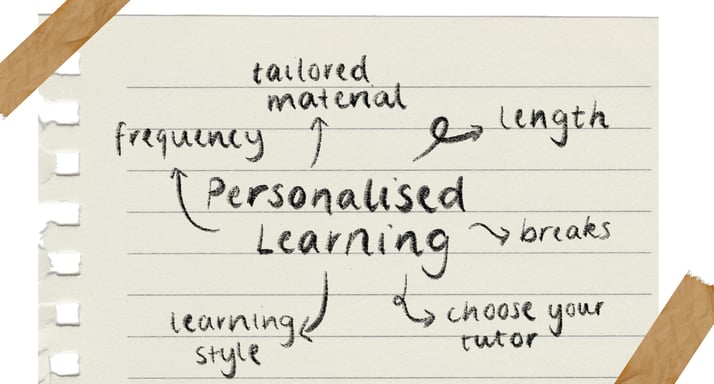 tailored
material
frequency
length
Personalised
Learning
breaks
learning
style
choose your
tutor